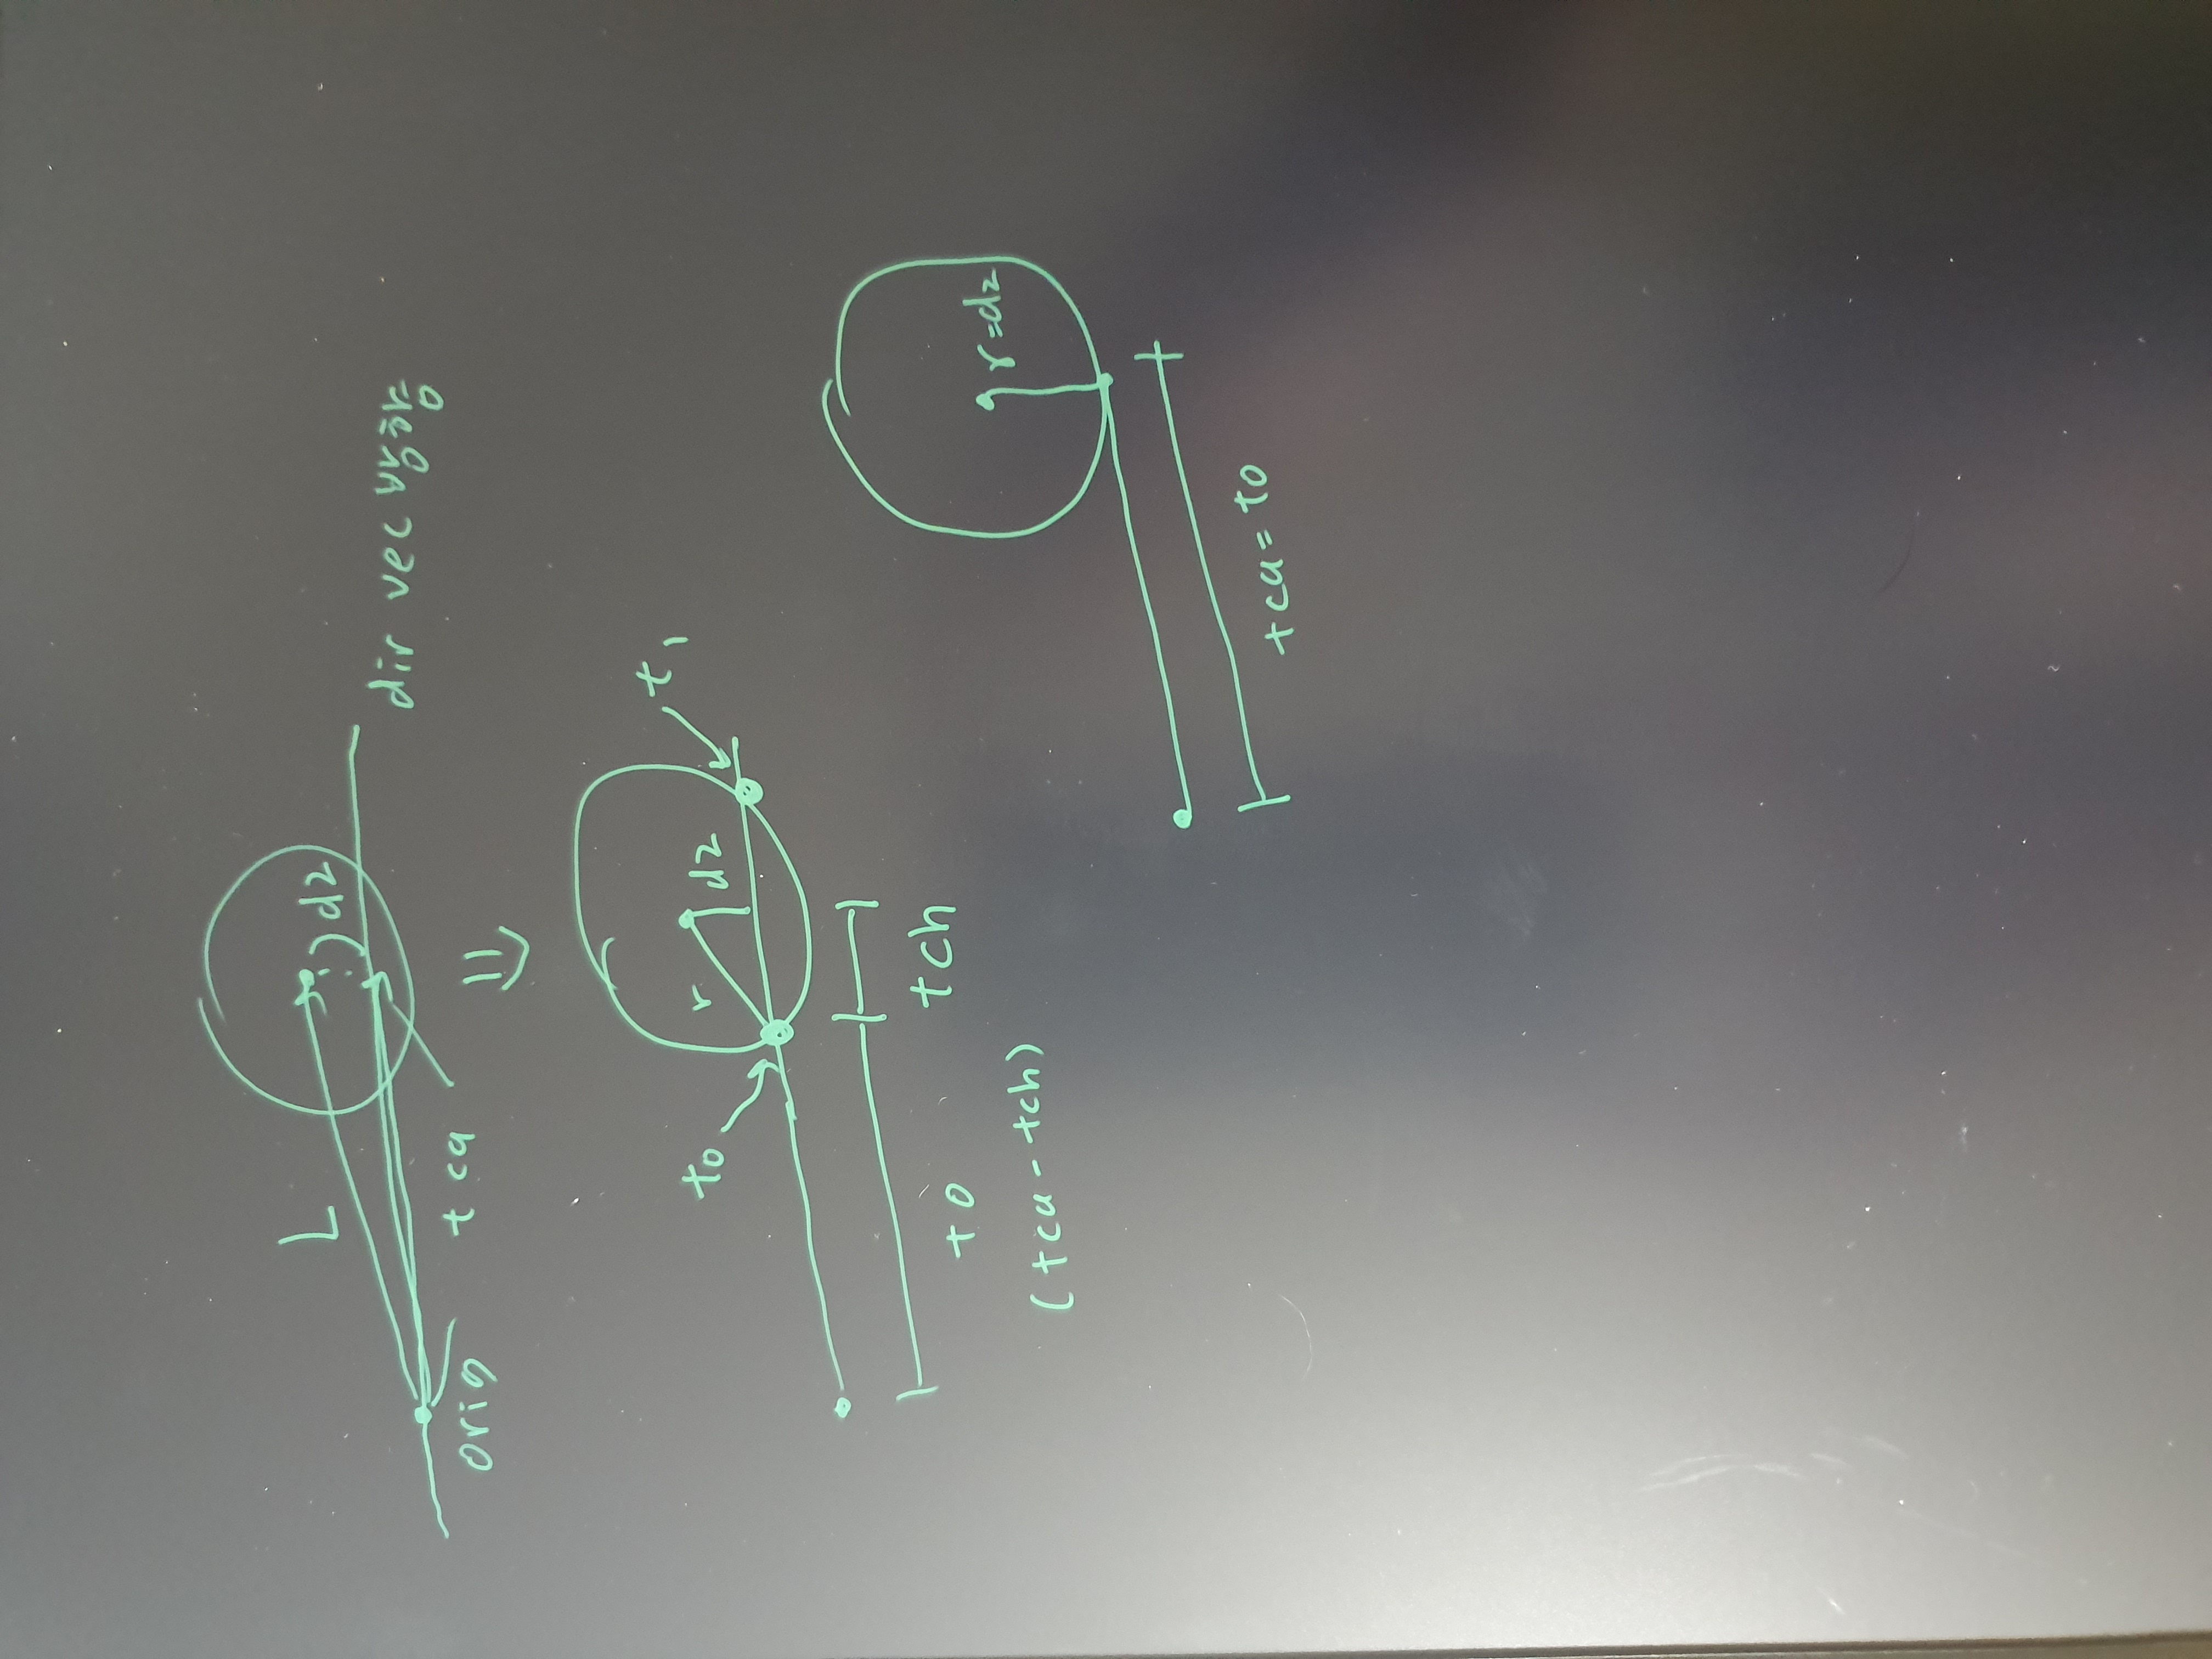 L
d2
dir vec 방향
orig
tca
t0
t1
r
d2
t0
tch
(tca - tch)
r=d2
tca = t0